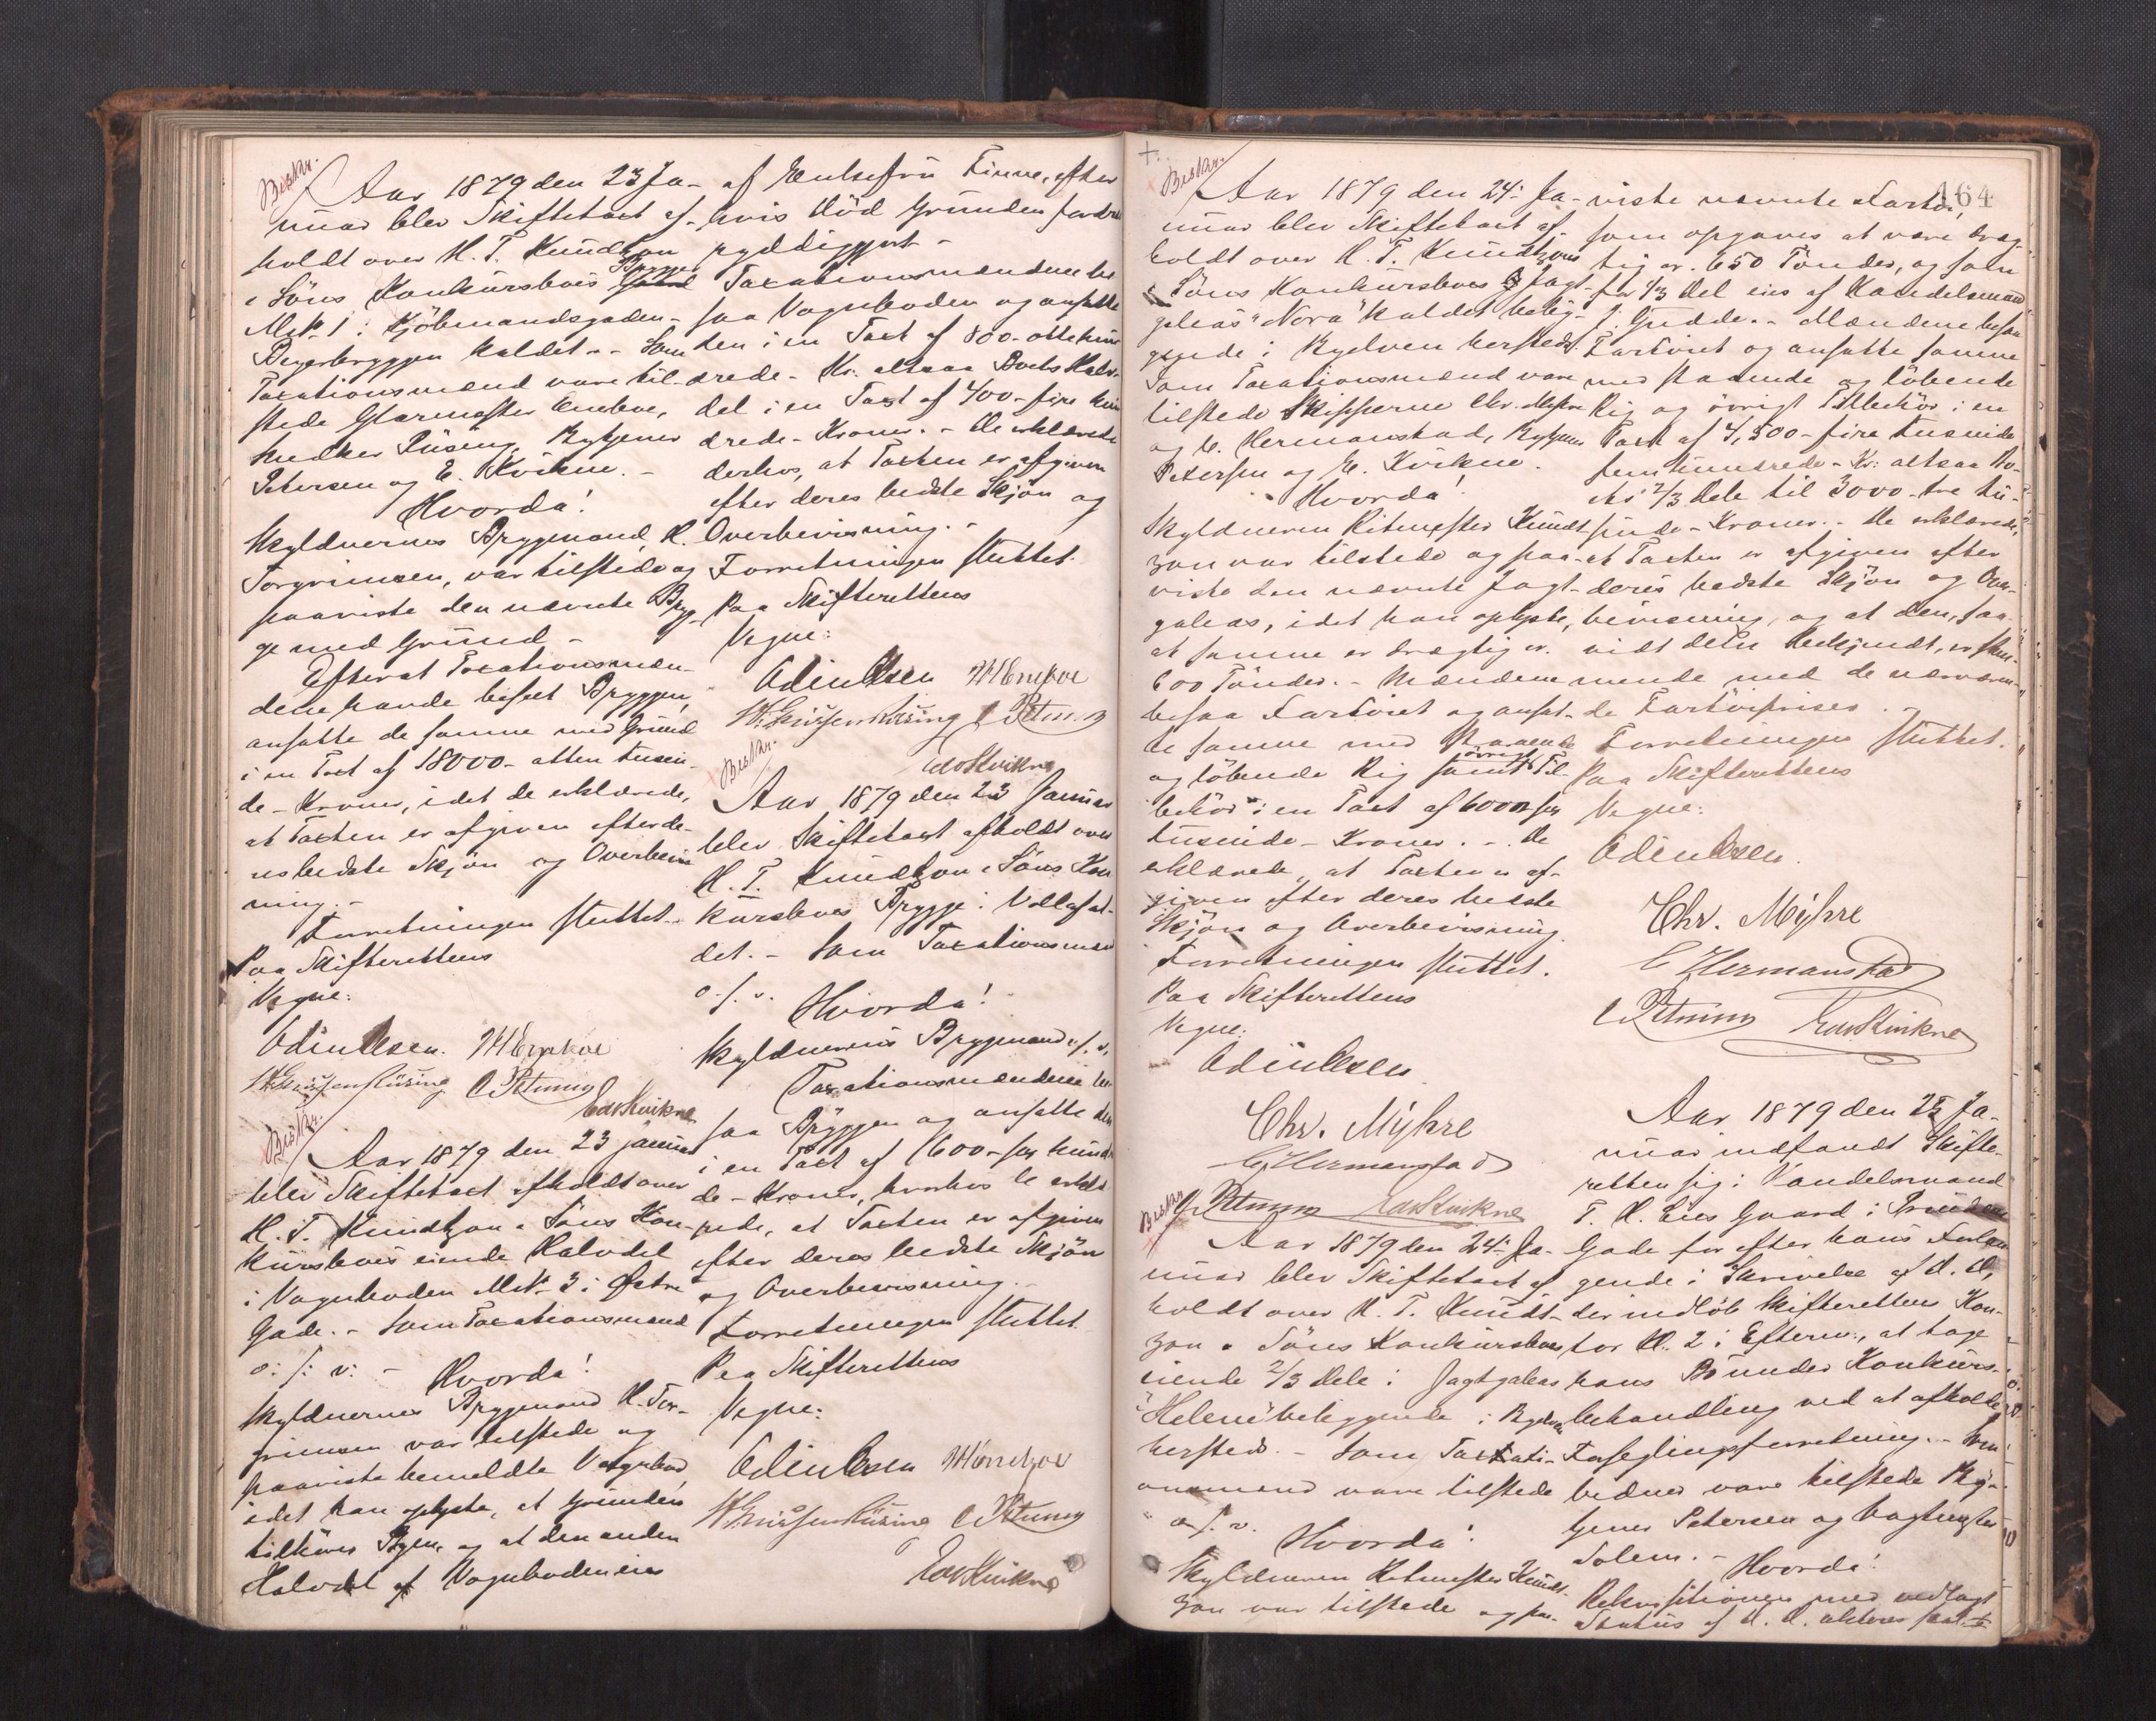 Beskr.
Aar 1879 den 23 Ja-
nuar blev Skiftetaxt af-
holdt over H. T. Knudtzon
& Søns Konkursboes Brygge
Mtr. 1 i Kjöbmandsgaden
Beyerbryggen kaldet. - Som
Taxationsmænd vare til-
stede Glarmester Eneboe,
Snedker Rüsing, Rygjener
Petersen og E. Kvikne. -
Hvorda!
Skyldnernes Bryggemand H.
Torgrimsen, var tilstede og
paaviste den nævnte Bryg-
ge med Grund -
Efterat Taxationsmæn-
dene havde beseet Bryggen,
ansatte de samme med Grund
i en Taxt af 18000 - atten tusin-
de - Kroner, idet de erklærede,
at Taxten er afgiven efter de-
res bedste Skjön og Overbevis
ning. -
Forretningen sluttet.
Paa Skifterettens
Vegne:
Odin Olsen. M Eneboe
Rüsing C Petersen
Edv Kvikne
Beskr.
Aar 1879 den 23 januar
blev Skiftetaxt afholdt over
H. T. Knudtzon & Söns Kon-
kursboes eiende Halvdel
i Vognboden Mtr. 3 i Østre
Gade. - Som Taxationsmænd
o: s: v: -
Hvorda!
Skyldnernes Bryggemand H. Tor-
grimsen var tilstede og
paaviste bemeldte Vognbod,
idet han oplyste, at Grunden
tilhører Byen, og at den anden
Halvdel af Vognboden eies
af Enkefru Finne, efter
hvis Död Grunden fordres
ryddiggjort -
Taxationsmændene be
saa Vognboden og ansatte
den i en Taxt af 800 - otte hun
drede - Kr. altsaa Boets Halv-
del i en Taxt af 400 - fire hun
drede - Kroner. - De erklærede
derhos, at Taxten er afgiven
efter deres bedste Skjön og
Overbevisning. -
Forretningen sluttet.
Paa Skifterettens
Vegne:
Odin Olsen M Eneboe
Rüsing C Petersen
Edv Kvikne
Beskr.
Aar 1879 den 23 Januar
blev Skiftetaxt afholdt over
H. T. Knudtzon & Söns Kon
kursboes Brygge i Vollafal-
det. - Som Taxationsmænd
o. s. v.
Hvorda!
Skyldnernes Bryggemand o. s. v.
Taxationsmændene be-
saa Bryggen og ansatte den
i en Taxt af 600 - sex hundre
de - Kroner, hvorhos de erklæ
rede, at Taxten er afgiven
efter deres bedste Skjön
og Overbevisning. -
Forretningen sluttet.
Paa Skifterettens
Vegne:
Odin Olsen M Eneboe
Rüsing C Petersen
Edv Kvikne
164
Beskr.
Aar 1879 den 24- Ja-
nuar blev Skiftetaxt af-
holdt over H. T. Knudtzons
& Söns Konkursboes Jagt-
galeas "Nora" kaldet belig-
gende i Byelven hersteds.
Som Taxationsmænd vare
tilstede Skipperne Chr. Myhre
og C. Hermanstad, Rygjener
Petersen og E. Kvikne.
Hvorda!
Skyldneren Ritmester Knudt-
zon var tilstede og paa-
viste den nævnte Jagt-
galeas, idet han oplyste,
at samme er drægtig cr.
600 Tönder. - Mændene
besaa Fartöiet og ansat-
te samme med staaende
og löbende Rig samt övrigt Til-
behör i en Taxt af 6000 sex
tusinde - Kroner. - De
erklærede, at Taxten er af-
given efter deres bedste
Skjön og Overbevisning.
Forretningen sluttet.
Paa Skifterettens
Vegne:
Odin Olsen
Chr. Myhre
C Hermanstad
C. Petersen Edv Kvikne
Beskr.
Aar 1879 den 24- Ja-
nuar blev Skiftetaxt af-
holdt over H. T. Knudt-
zon & Söns Konkursboes
eiende 2/3 Dele i Jagtgaleas
"Helene" beliggende i Byelven
hersteds. - Som Taxati-
onsmænd vare tilstede
o. s. v.
Hvorda!
Skyldneren Ritmester Knudt-
zon var tilstede og paa-
viste nævnte Fartöi,
som opgaves at være dræg-
tig cr. 650 Tönder, og som
for 1/3 Del eies af Handelsmand
J. Gudde. - Mændene besaa
Fartöiet og ansatte samme
med staaende og löbende
Rig og övrigt Tilbehör i en
Taxt af 4,500 - fire tusinde
fem hundrede - Kr: altsaa Bo-
ets 2/3 Dele til 3000 - tre tu-
sinde - Kroner. - De erklærede,
at Taxten er afgiven efter
deres bedste Skjön og Over-
bevisning, og at den, saa-
vidt dem bekjendt, er stem-
mende med de nærværen-
de Fartöipriser. -
Forretningen sluttet.
Paa Skifterettens
Vegne:
Odin Olsen.
Chr. Myhre
C Hermanstad
C Petersen Edv Kvikne
Aar 1879 den 25 Ja-
nuar indfandt Skifte-
retten sig i Handelsmand
T. H. Lies Gaard i
Gade for efter hans Forlan
gende i Skrivelse af D. D,
der indløb Skifterettens Kon-
tor Kl. 2 i Efterm:, at tage
hans Bo under Konkurs-
behandling ved at afholde
Forseglingsforretning. - Som
Vidner vare tilstede Ryg-
jener Petersen og Vagtmester
Solem. -
Hvorda!
Rekvisitionen med vedlagt
Status af D. D. akteres saal.